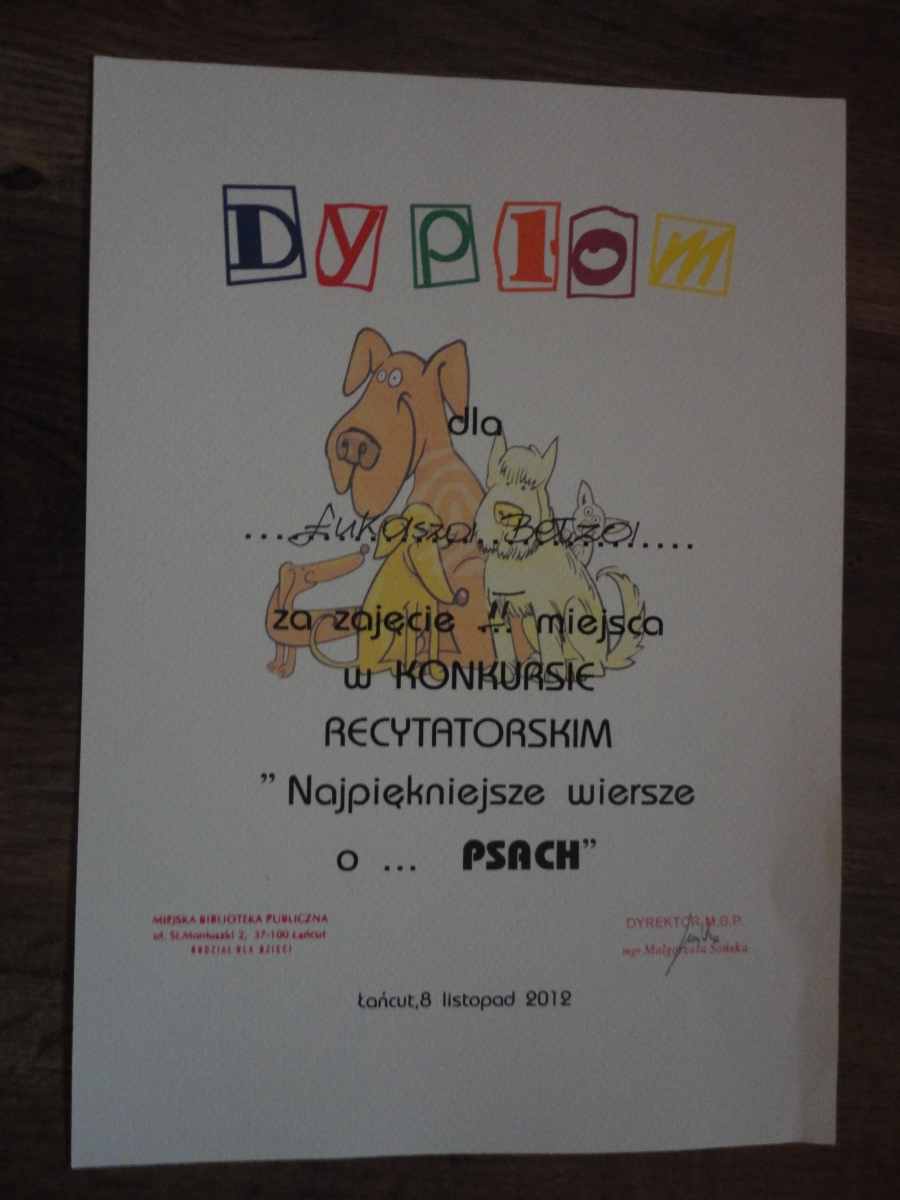 Dyplom
dla
Łukasza Betza
za zajęcie II miejsca
w KONKURSIE
RECYTATORSKIM
” Najpiękniejsze wiersze
o ... PSACH”
MIEJSKA BIBLIOTEKA PUBLICZNA
ul. St.Moniuszki 2, 37-100 Łańcut
ODDZIAŁ DLA DZIECI
DYREKTOR M.B.P.
mgr Małgorzata Sońska
Łańcut,8 listopad 2012